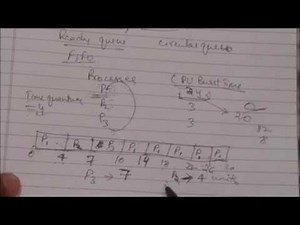 Ready queue circular queue
FIFO
Processes CPU Burst Time
P1 24
Time quantum P2 3 20
4 P3 3
P1 P2 P3 P1 P1 P1 P1 P1
0 4 7 10 14 18
P3 → 7 P2 → 4 units